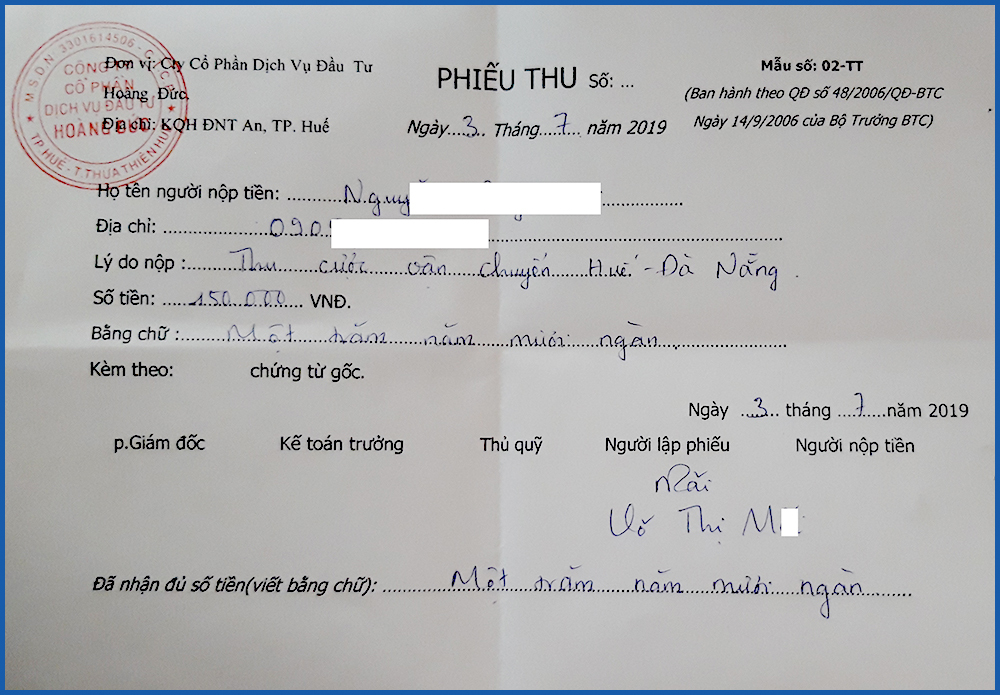 M.S.D.N: 3301614506 - C.T.C.P
CÔNG TY
CỔ PHẦN
DỊCH VỤ ĐẦU TƯ
HOÀNG ĐỨC
TP.HUẾ - T.THỪA THIÊN HUẾ
Đơn vị: Cty Cổ Phần Dịch Vụ Đầu Tư
Hoàng Đức.
Địa chỉ: KQH ĐNT An, TP. Huế
PHIẾU THU Số: ...
Ngày.....3.. Tháng....7... năm 2019
Mẫu số: 02-TT
(Ban hành theo QĐ số 48/2006/QĐ-BTC
Ngày 14/9/2006 của Bộ Trưởng BTC)
Họ tên người nộp tiền: ...........
Địa chỉ: ...................
Lý do nộp :.......Thu cước vận chuyển Huế - Đà Nẵng.
Số tiền: ......150.000... VNĐ.
Bằng chữ :........Một trăm năm mươi ngàn.
Kèm theo: chứng từ gốc.
Ngày ....3.. tháng ....7....năm 2019
p.Giám đốc Kế toán trưởng Thủ quỹ Người lập phiếu Người nộp tiền
Võ Thị
Đã nhận đủ số tiền(viết bằng chữ): ............Một trăm năm mươi ngàn.........